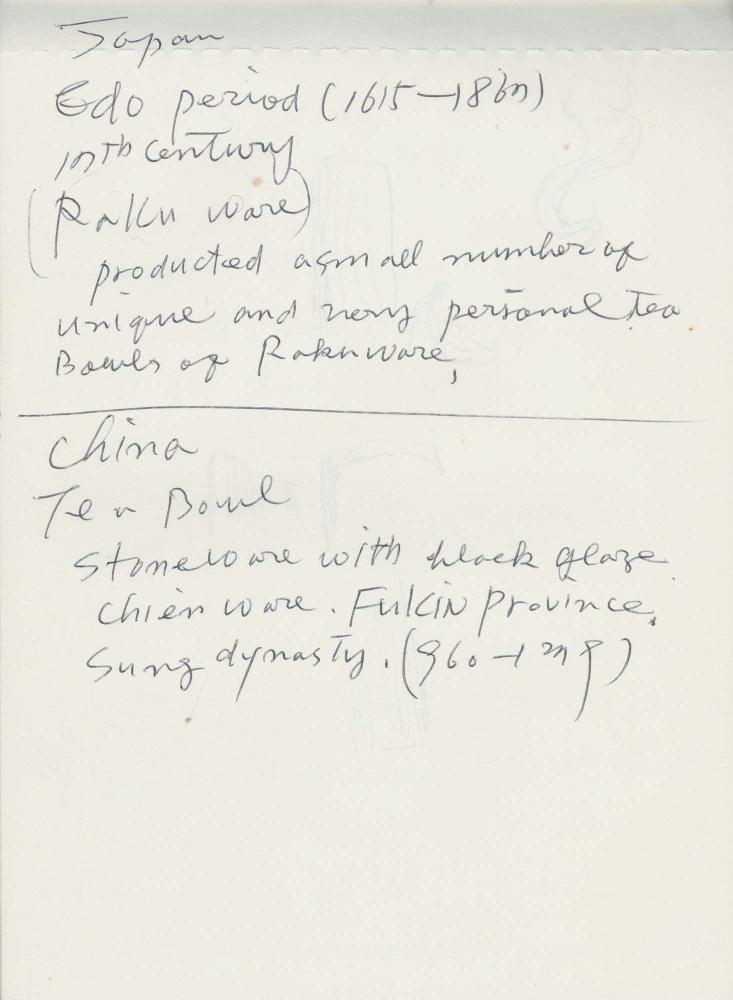 Japan
Edo period (1615—1867)
17th century
(Raku ware)
producted a small number of
unique and very personal tea
Bowls of Raku ware,
China
Tea Bowl
stoneware with black glaze
Chien ware. FuKiN province.
Sung dynasty. (960—1279)